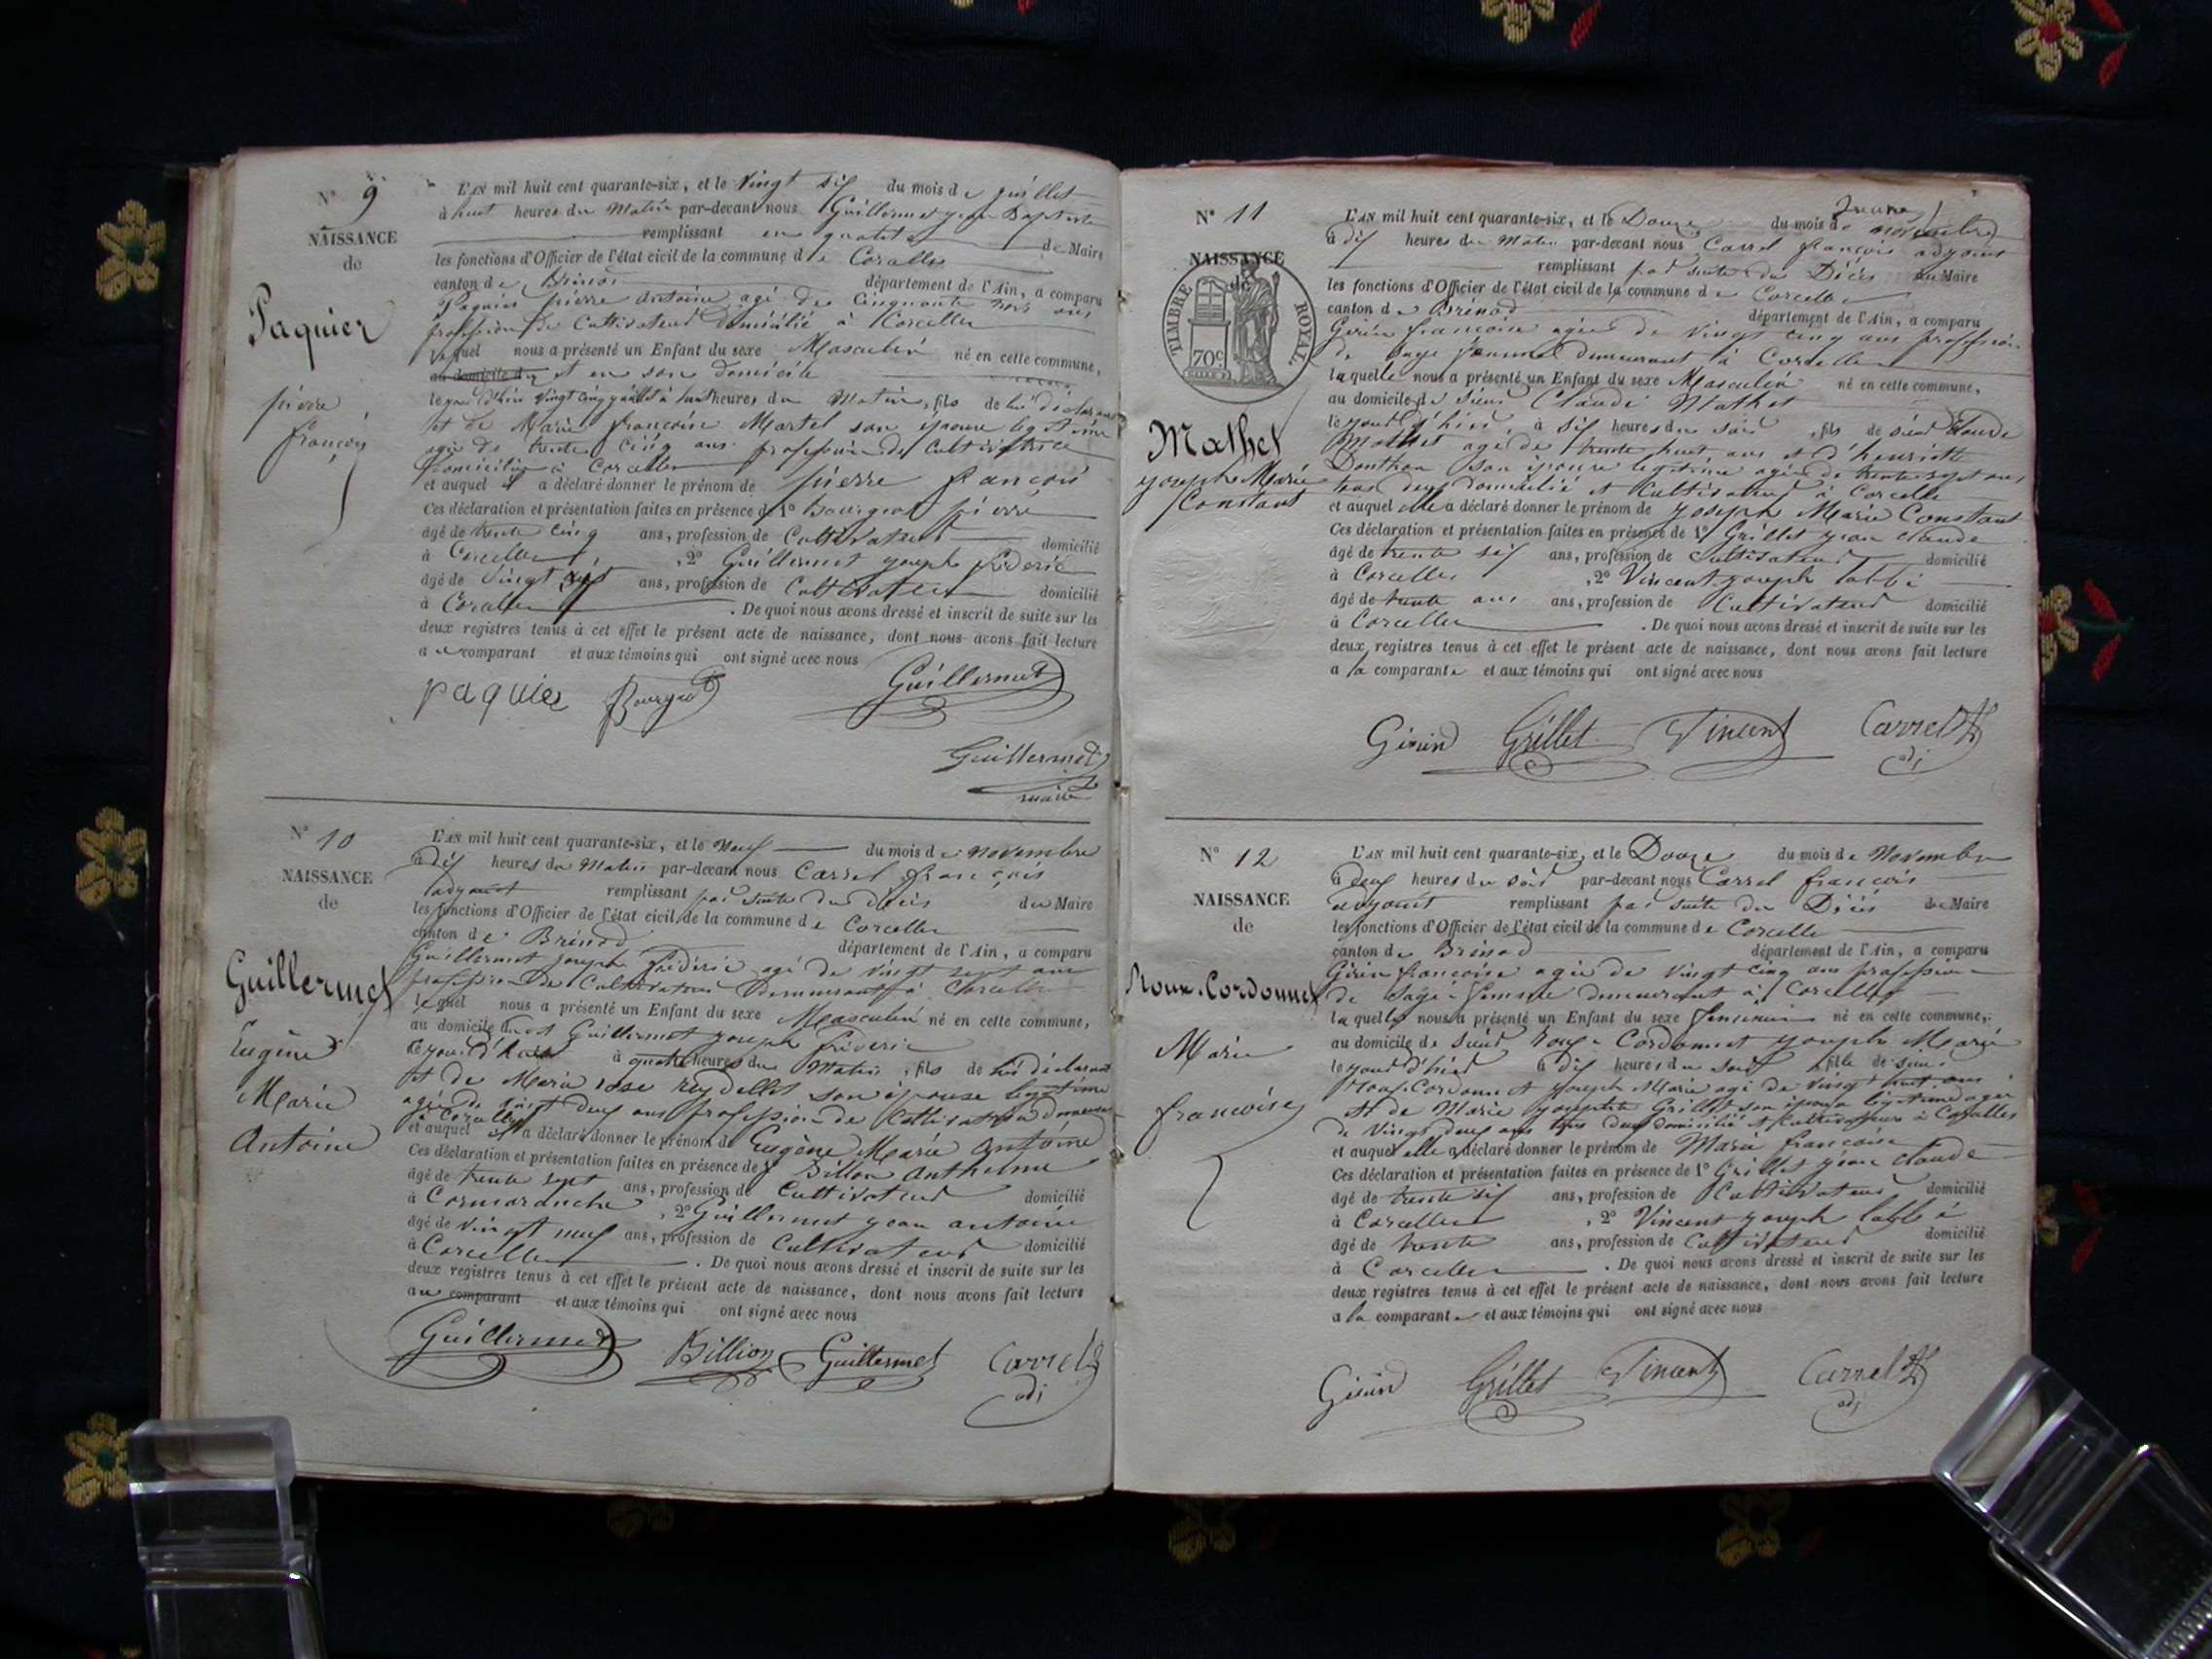 N° 9
NAISSANCE
de
Paquier
pierre
françois
L'AN mil huit cent quarante-six, et le Vingt six du mois de juillet
à huit heures du Matin par-devant nous Guillermet jean Baptiste
remplissant en qualité de Maire
les fonctions d'Officier de l'état civil de la commune de Corcelle
canton de Brénod département de l'Ain, a comparu
Paquier pierre antoine agé de Cinquante trois ans
profession de Cultivateur domicilié à Corcelles
lequel nous a présenté un Enfant du sexe Masculin né en cette commune,
au domicile d et en son domicile
le jour d'hier Vingt cinq juillet à heures du Matin, fils de lui déclarant
et de Marie françoise Martel son épouse légitime
agée de trente cinq ans profession de Cultivatrice
domiciliée à Corcelles
et auquel il a déclaré donner le prénom de pierre françois
Ces déclaration et présentation faites en présence de 1° Bourgeot pierre
âgé de trente cinq ans, profession de Cultivateur domicilié
à Corcelles, 2° Guillermet joseph fréderic
âgé de Vingt sept ans, profession de Cultivateur domicilié
à Corcelles . De quoi nous avons dressé et inscrit de suite sur les
deux registres tenus à cet effet le présent acte de naissance, dont nous avons fait lecture
au comparant et aux témoins qui ont signé avec nous
paquier Bourgeot Guillermet
Guillermet
maire
N° 10
NAISSANCE
de
Guillermet
Eugène
Marie
Antoine
L'AN mil huit cent quarante-six, et le Neuf du mois de Novembre
à dix heures du Matin par-devant nous Carrel françois
adjoint remplissant par suite du décès du Maire
les fonctions d'Officier de l'état civil de la commune de Corcelles
canton de Brénod département de l'Ain, a comparu
Guillermet joseph fréderic agé de vingt sept ans
profession de Cultivateur demeurant à Corcelles
lequel nous a présenté un Enfant du sexe Masculin né en cette commune,
au domicile dudit Guillermet joseph fréderic
le jour d'hier à quatre heures du Matin, fils de lui déclarant
et de Marie rose reydellet son épouse légitime
agée de vingt deux ans profession de Cultivatrice demeurant
à Corcelles
et auquel il a déclaré donner le prénom de Eugène Marie Antoine
Ces déclaration et présentation faites en présence de 1° Billon Anthelme
âgé de trente sept ans, profession de Cultivateur domicilié
à Cormaranche, 2° Guillermet jean antoine
âgé de vingt neuf ans, profession de Cultivateur domicilié
à Corcelles . De quoi nous avons dressé et inscrit de suite sur les
deux registres tenus à cet effet le présent acte de naissance, dont nous avons fait lecture
au comparant et aux témoins qui ont signé avec nous
Guillermet Billion Guillermet Carrel
adj
N° 11
NAISSANCE
de
TIMBRE ROYAL
70c
Mathet
joseph Marie
Constant
L'AN mil huit cent quarante-six, et le Douze du mois de novembre
à dix heures du Matin par-devant nous Carrel françois adjoint
remplissant par suite du Décès du Maire
les fonctions d'Officier de l'état civil de la commune de Corcelles
canton de Brénod département de l'Ain, a comparu
Girin françoise agée de Vingt cinq ans profession
de sage femme demeurant à Corcelles
laquelle nous a présenté un Enfant du sexe Masculin né en cette commune,
au domicile de sieur Claude Mathet
le jour d'hier, à six heures du soir, fils de sieur Claude
Mathet agé de trente huit ans et d'henriette
Donthon son épouse légitime agée de trente sept ans
tous deux domicilié et Cultivateur à Corcelles
et auquel elle a déclaré donner le prénom de joseph Marie Constant
Ces déclaration et présentation faites en présence de 1° Grillet jean claude
âgé de trente six ans, profession de Cultivateur domicilié
à Corcelles, 2° Vincent joseph labbé
âgé de trente ans ans, profession de Cultivateur domicilié
à Corcelles . De quoi nous avons dressé et inscrit de suite sur les
deux registres tenus à cet effet le présent acte de naissance, dont nous avons fait lecture
a la comparante et aux témoins qui ont signé avec nous
Girin Grillet Vincent Carrel
adj
N° 12
NAISSANCE
de
Roux-Cordonnet
Marie
francoise
L'AN mil huit cent quarante-six, et le Douze du mois de Novembre
à deux heures du soir par-devant nous Carrel françois
adjoint remplissant par suite du Décès du Maire
les fonctions d'Officier de l'état civil de la commune de Corcelle
canton de Brénod département de l'Ain, a comparu
Girin françoise agée de Vingt cinq ans profession
de Sage-femme demeurant à Corcelles
laquelle nous a présenté un Enfant du sexe féminin né en cette commune,
au domicile de sieur Roux-Cordonnet joseph Marie
le jour d'hier à dix heures du soir fille de sieur
Roux-Cordonnet joseph Marie agé de vingt huit ans
et de Marie josephte Grillet son épouse légitime agée
de Vingt deux ans tous deux domicilié et Cultivateurs à Corcelles
et auquel elle a déclaré donner le prénom de Marie francoise
Ces déclaration et présentation faites en présence de 1° Grillet jean claude
âgé de trente six ans, profession de Cultivateur domicilié
à Corcelles, 2° Vincent joseph labbé
âgé de trente ans, profession de Cultivateur domicilié
à Corcelles . De quoi nous avons dressé et inscrit de suite sur les
deux registres tenus à cet effet le présent acte de naissance, dont nous avons fait lecture
a la comparante et aux témoins qui ont signé avec nous
Girin Grillet Vincent Carrel
adj